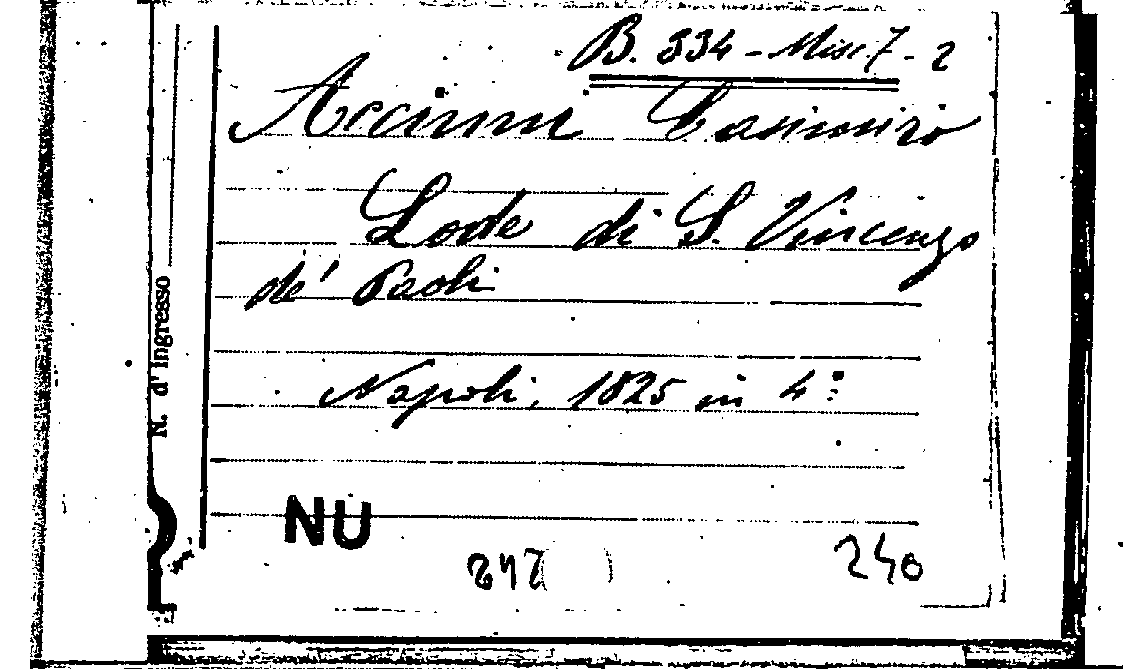 B. 334 - Misc 7 - 2
Accinni Casimiro
Lode di S. Vincenzo
de' Paoli
Napoli, 1825 in 4°
N. d'Ingresso
NU
240